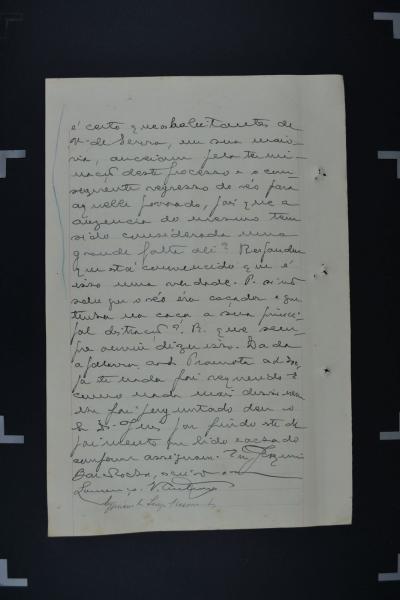 é certo que os habitantes de
V. de Serra, em sua maio-
ria, anceiam pela termi-
nação deste processo e o con-
sequente regresso do réo para
aquelle povoado, por que a
auzencia do mesmo tem
sido considerada uma
grande falta ali? Respondeu
que está convencido que é
isso uma verdade. P. si não
sabe que o réo éra caçador e que
tinha na caça a sua princi-
pal distração? R. que sem-
pre ouviu dizer isso. Dada
a palavra ao Promotor
já te nada foi requerido. E
como nada mais disse nem
lhe foi perguntado deu o
Juiz por findo este de-
poimento que lido e achado
conforme assignam. Eu
Rocha, escrivão
Lourenço